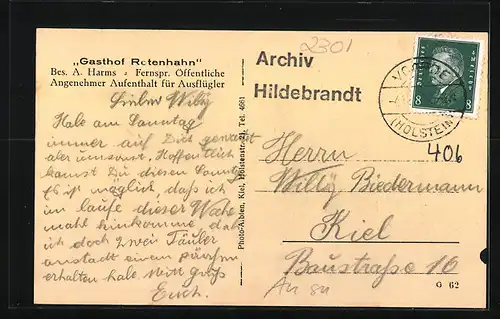 „Gasthof Rotenhahn"
Bes. A. Harms - Fernspr. Öffentliche
Angenehmer Aufenthalt für Ausflügler
Lieber Willy
Habe am Sonntag
immer auf Dich gewartet
aber umsonst. Hoffentlich
kannst Du diesen Sonntag
Es ist möglich, daß ich
im laufe dieser Woche
mahl hinkomme, da
ich doch zwei Täuber
anstadt einem
erhalten habe. Mit Gruß
Erich.
Photo-Abteilg. Kiel, Holstenstr. Tel. 4681
2301
Archiv
Hildebrandt
Deutsches Reich
8 8
(HOLSTEIN)
406
Herrn
Willy Biedermann
Kiel
Baustraße 10
G 62